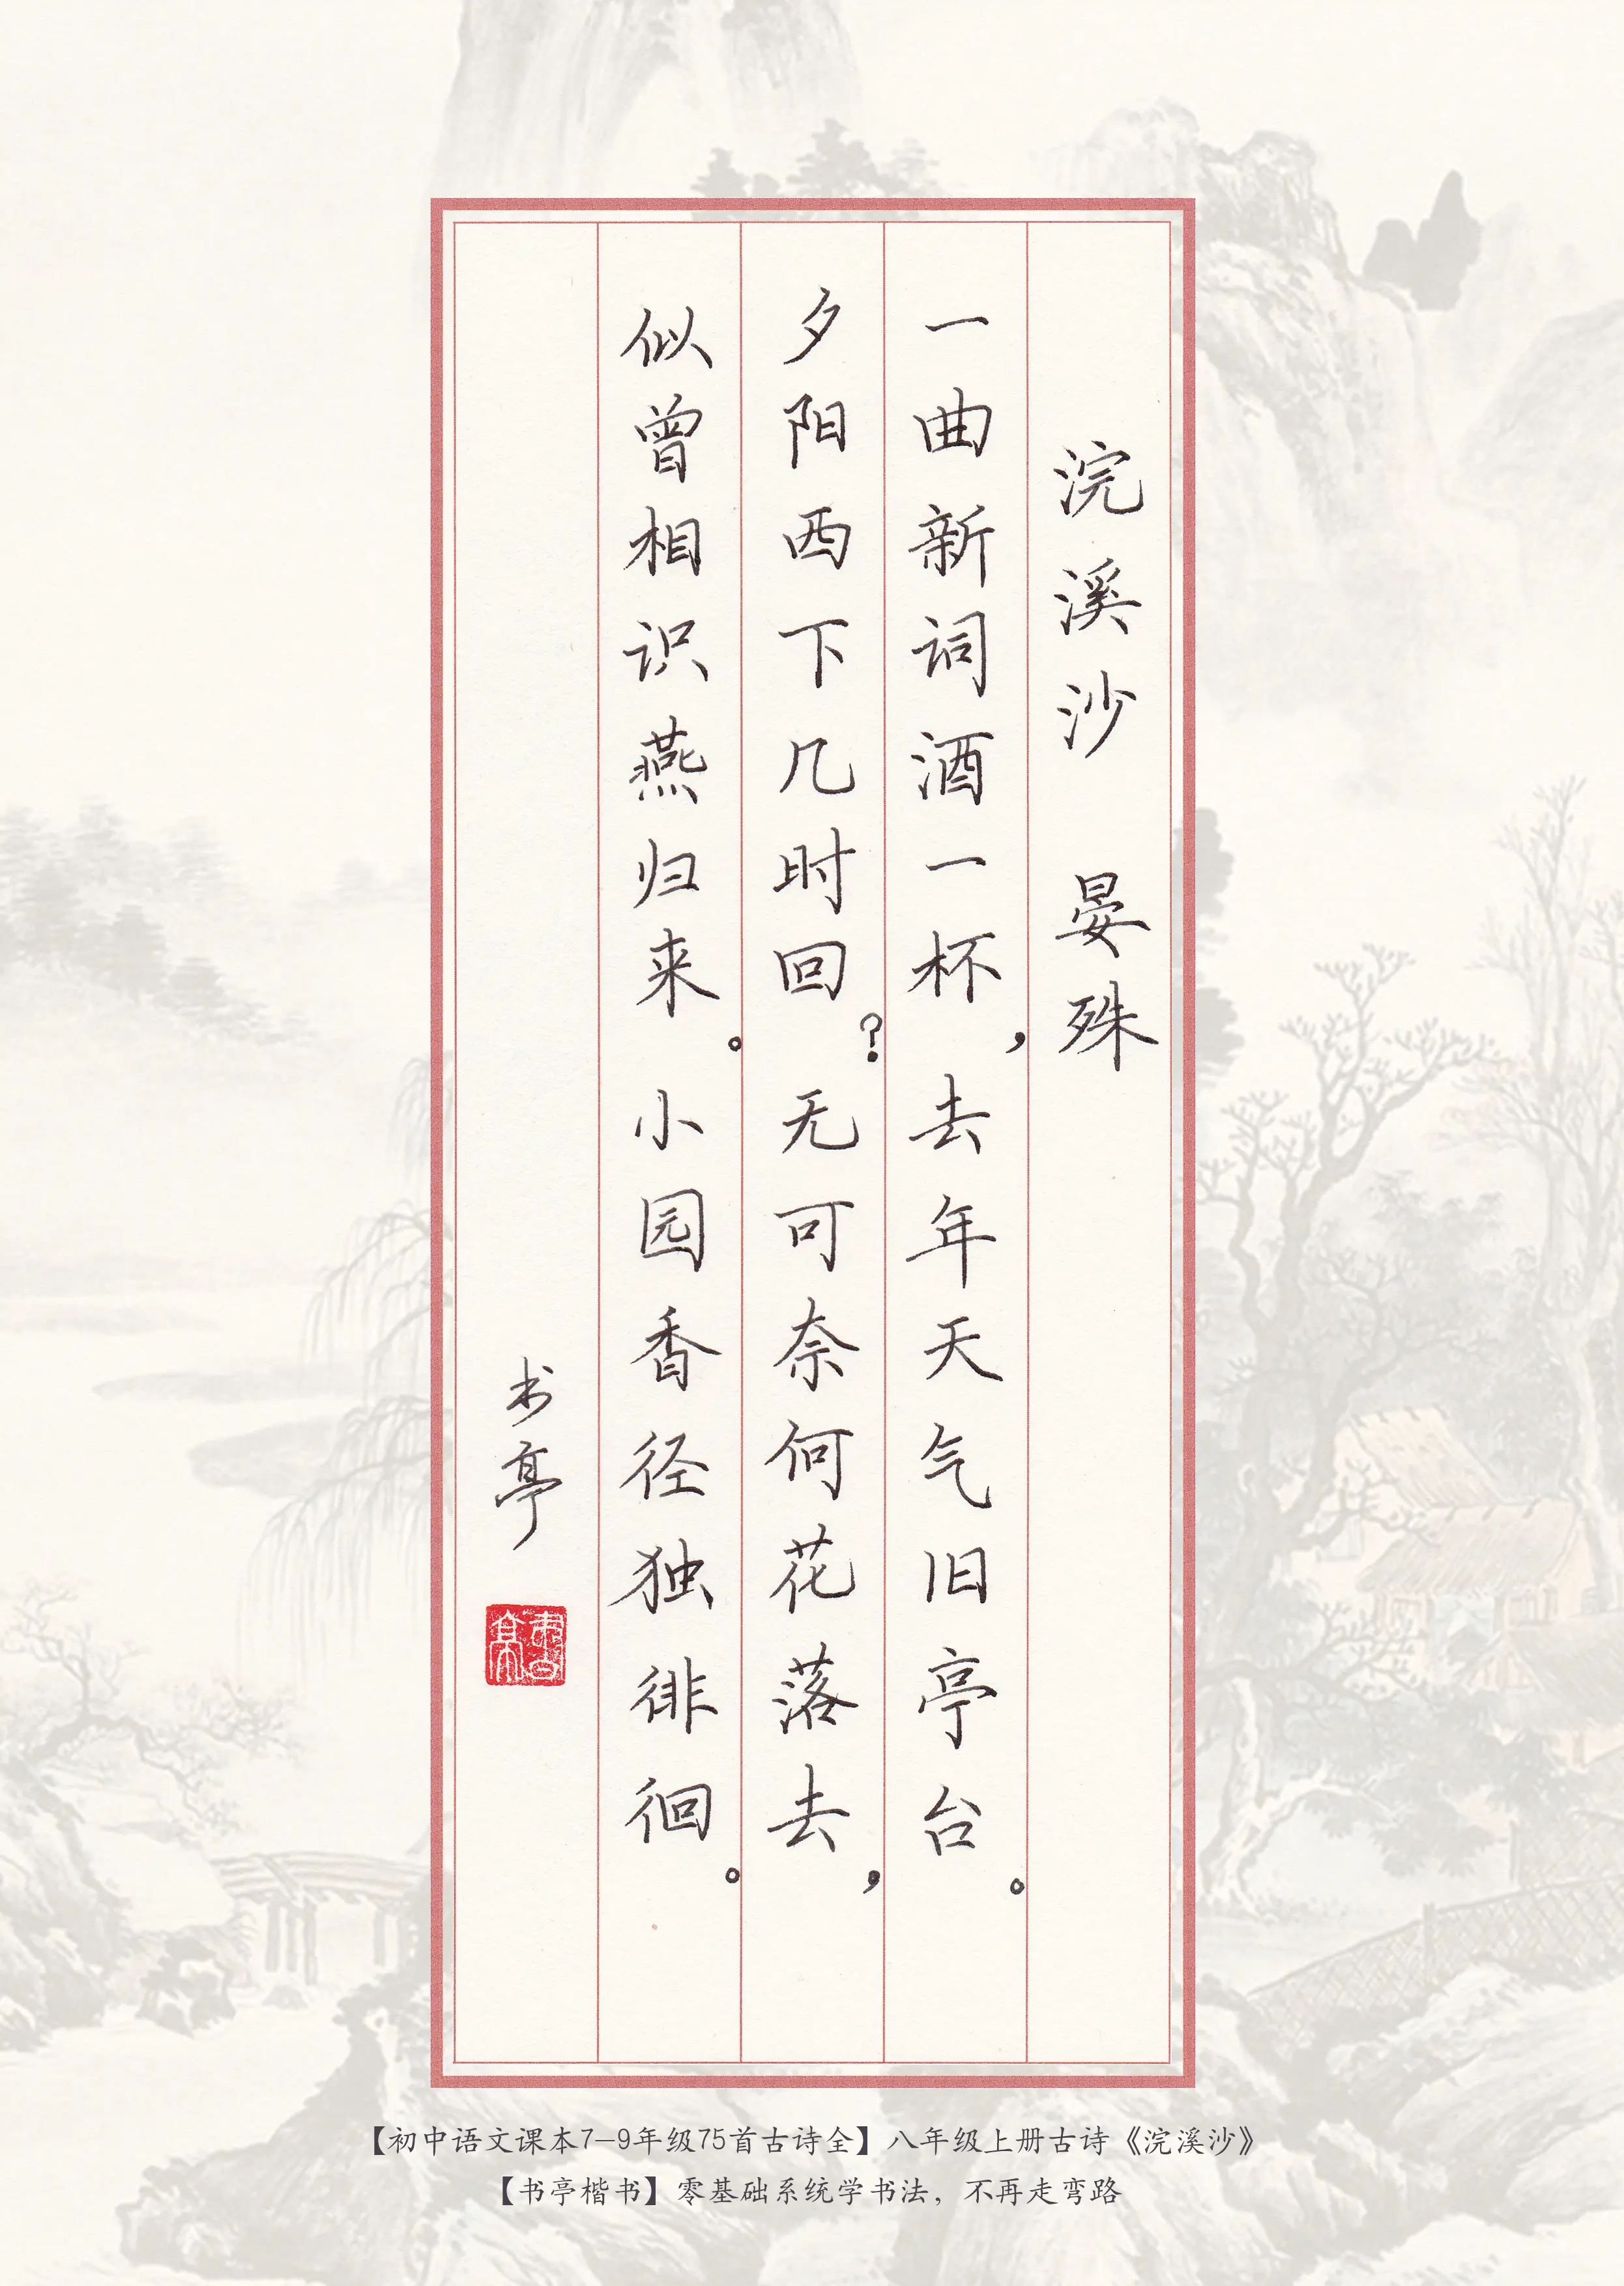 浣溪沙 晏殊
一曲新词酒一杯，去年天气旧亭台。
夕阳西下几时回？无可奈何花落去，
似曾相识燕归来。小园香径独徘徊。
书亭
書亭
【初中语文课本7-9年级75首古诗全】八年级上册古诗《浣溪沙》
【书亭楷书】零基础系统学书法，不再走弯路